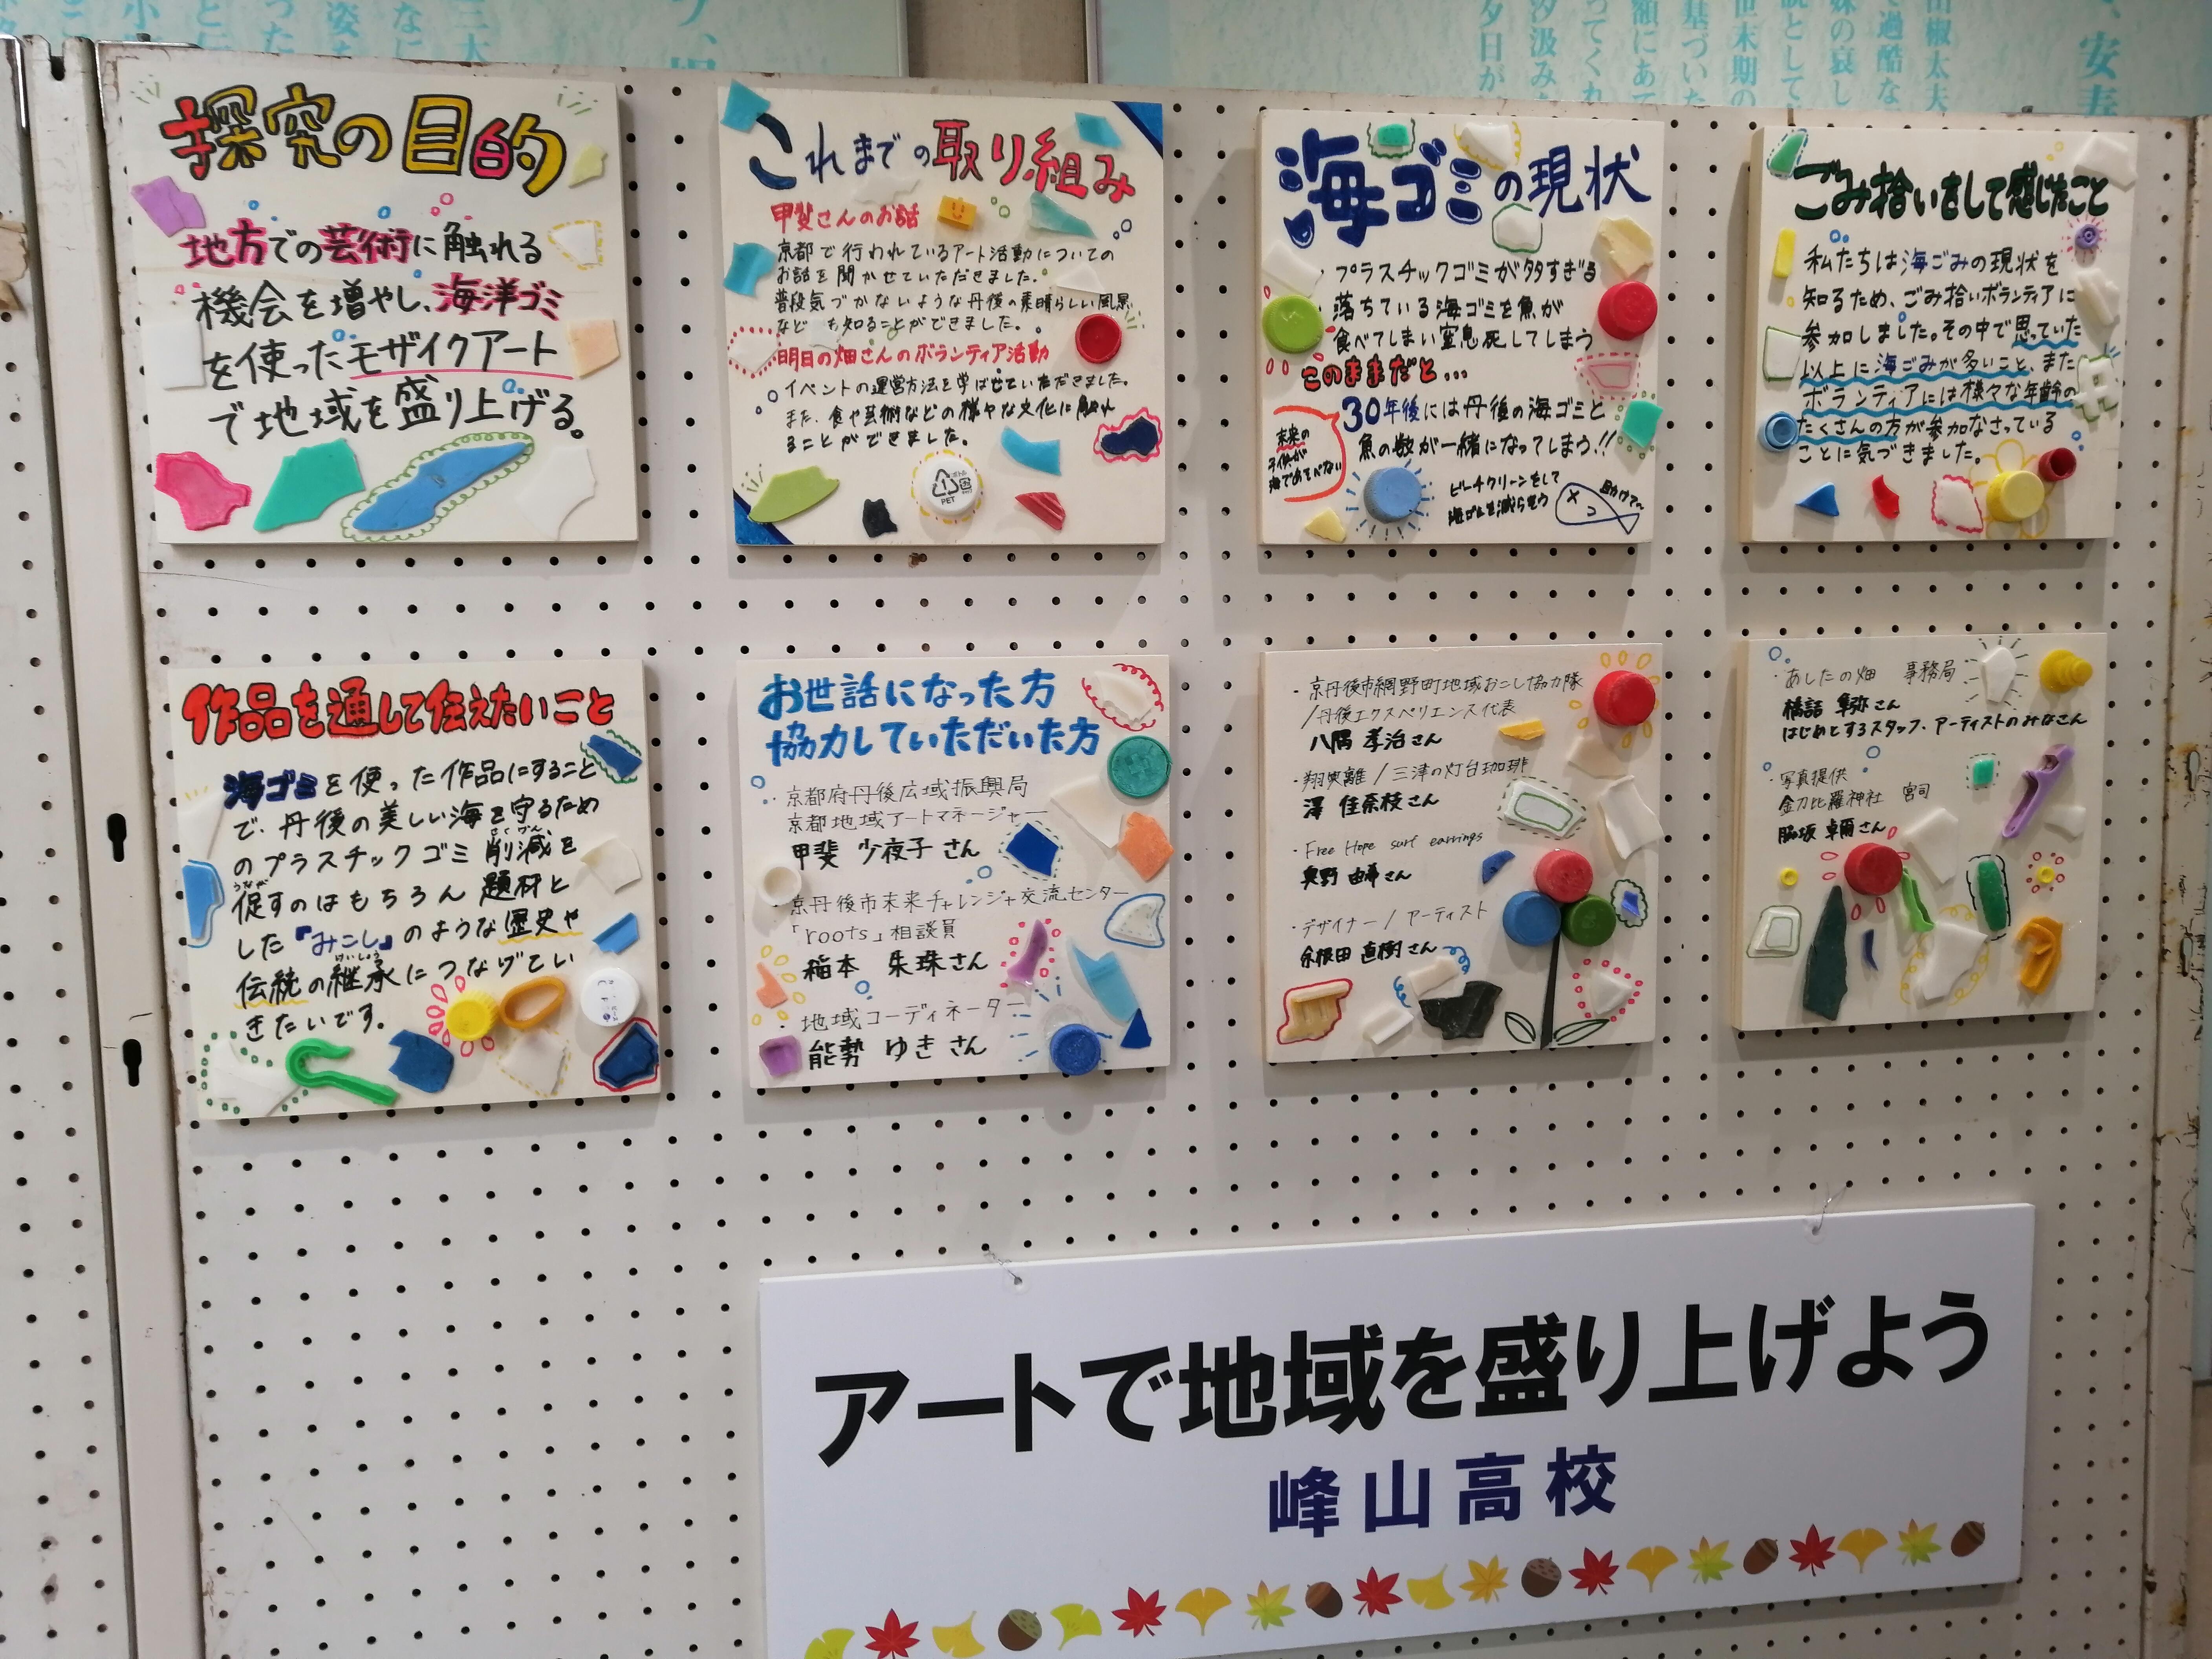 探究の目的
地方での芸術に触れる
機会を増やし、海洋ゴミ
を使ったモザイクアート
で地域を盛り上げる。
これまでの取り組み
甲斐さんのお話
京都で行われているアート活動についての
お話を聞かせていただきました。
普段気づかないような丹後の素晴らしい風景
など も知ることができました。
明日の畑さんのボランティア活動
イベントの運営方法を学ばせていただきました。
また、食や芸術などの様々な文化に触れ
ることができました。
PET
海ゴミの現状
・プラスチックゴミが多すぎる
・落ちている海ゴミを魚が
食べてしまい窒息死してしまう
このままだと...
30年後には丹後の海ゴミと
魚の数が一緒になってしまう!!
未来の
子供が
海であそべない
ビーチクリーンをして
海ゴミを減らそう
助けて〜
ごみ拾いをして感じたこと
私たちは海ごみの現状を
知るため、ごみ拾いボランティアに
参加しました。その中で思っていた
以上に海ごみが多いこと、また
ボランティアには様々な年齢の
たくさんの方が参加なさっている
ことに気づきました。
作品を通して伝えたいこと
海ゴミを使った作品にすること
で、丹後の美しい海を守るため
のプラスチックゴミ削減を
促すのはもちろん題材と
した『みこし』のような歴史や
伝統の継承につなげてい
きたいです。
お世話になった方
協力していただいた方
・京都府丹後広域振興局
京都地域アートマネージャー
甲斐 少夜子さん
・京丹後市未来チャレンジ交流センター
「roots」相談員
稲本 朱珠さん
・地域コーディネーター
能勢 ゆきさん
・京丹後市網野町地域おこし協力隊
/丹後エクスペリエンス代表
八隅 孝治さん
・翔笑離/三津の灯台珈琲
澤 佳奈枝さん
・Free Hope surf earrings
奥野 由希さん
・デザイナー/アーティスト
余根田 直樹さん
・あしたの畑 事務局
橋詰 隼弥さん
はじめとするスタッフ・アーティストのみなさん
・写真提供
金刀比羅神社 宮司
脇坂 卓爾さん
アートで地域を盛り上げよう
峰山高校